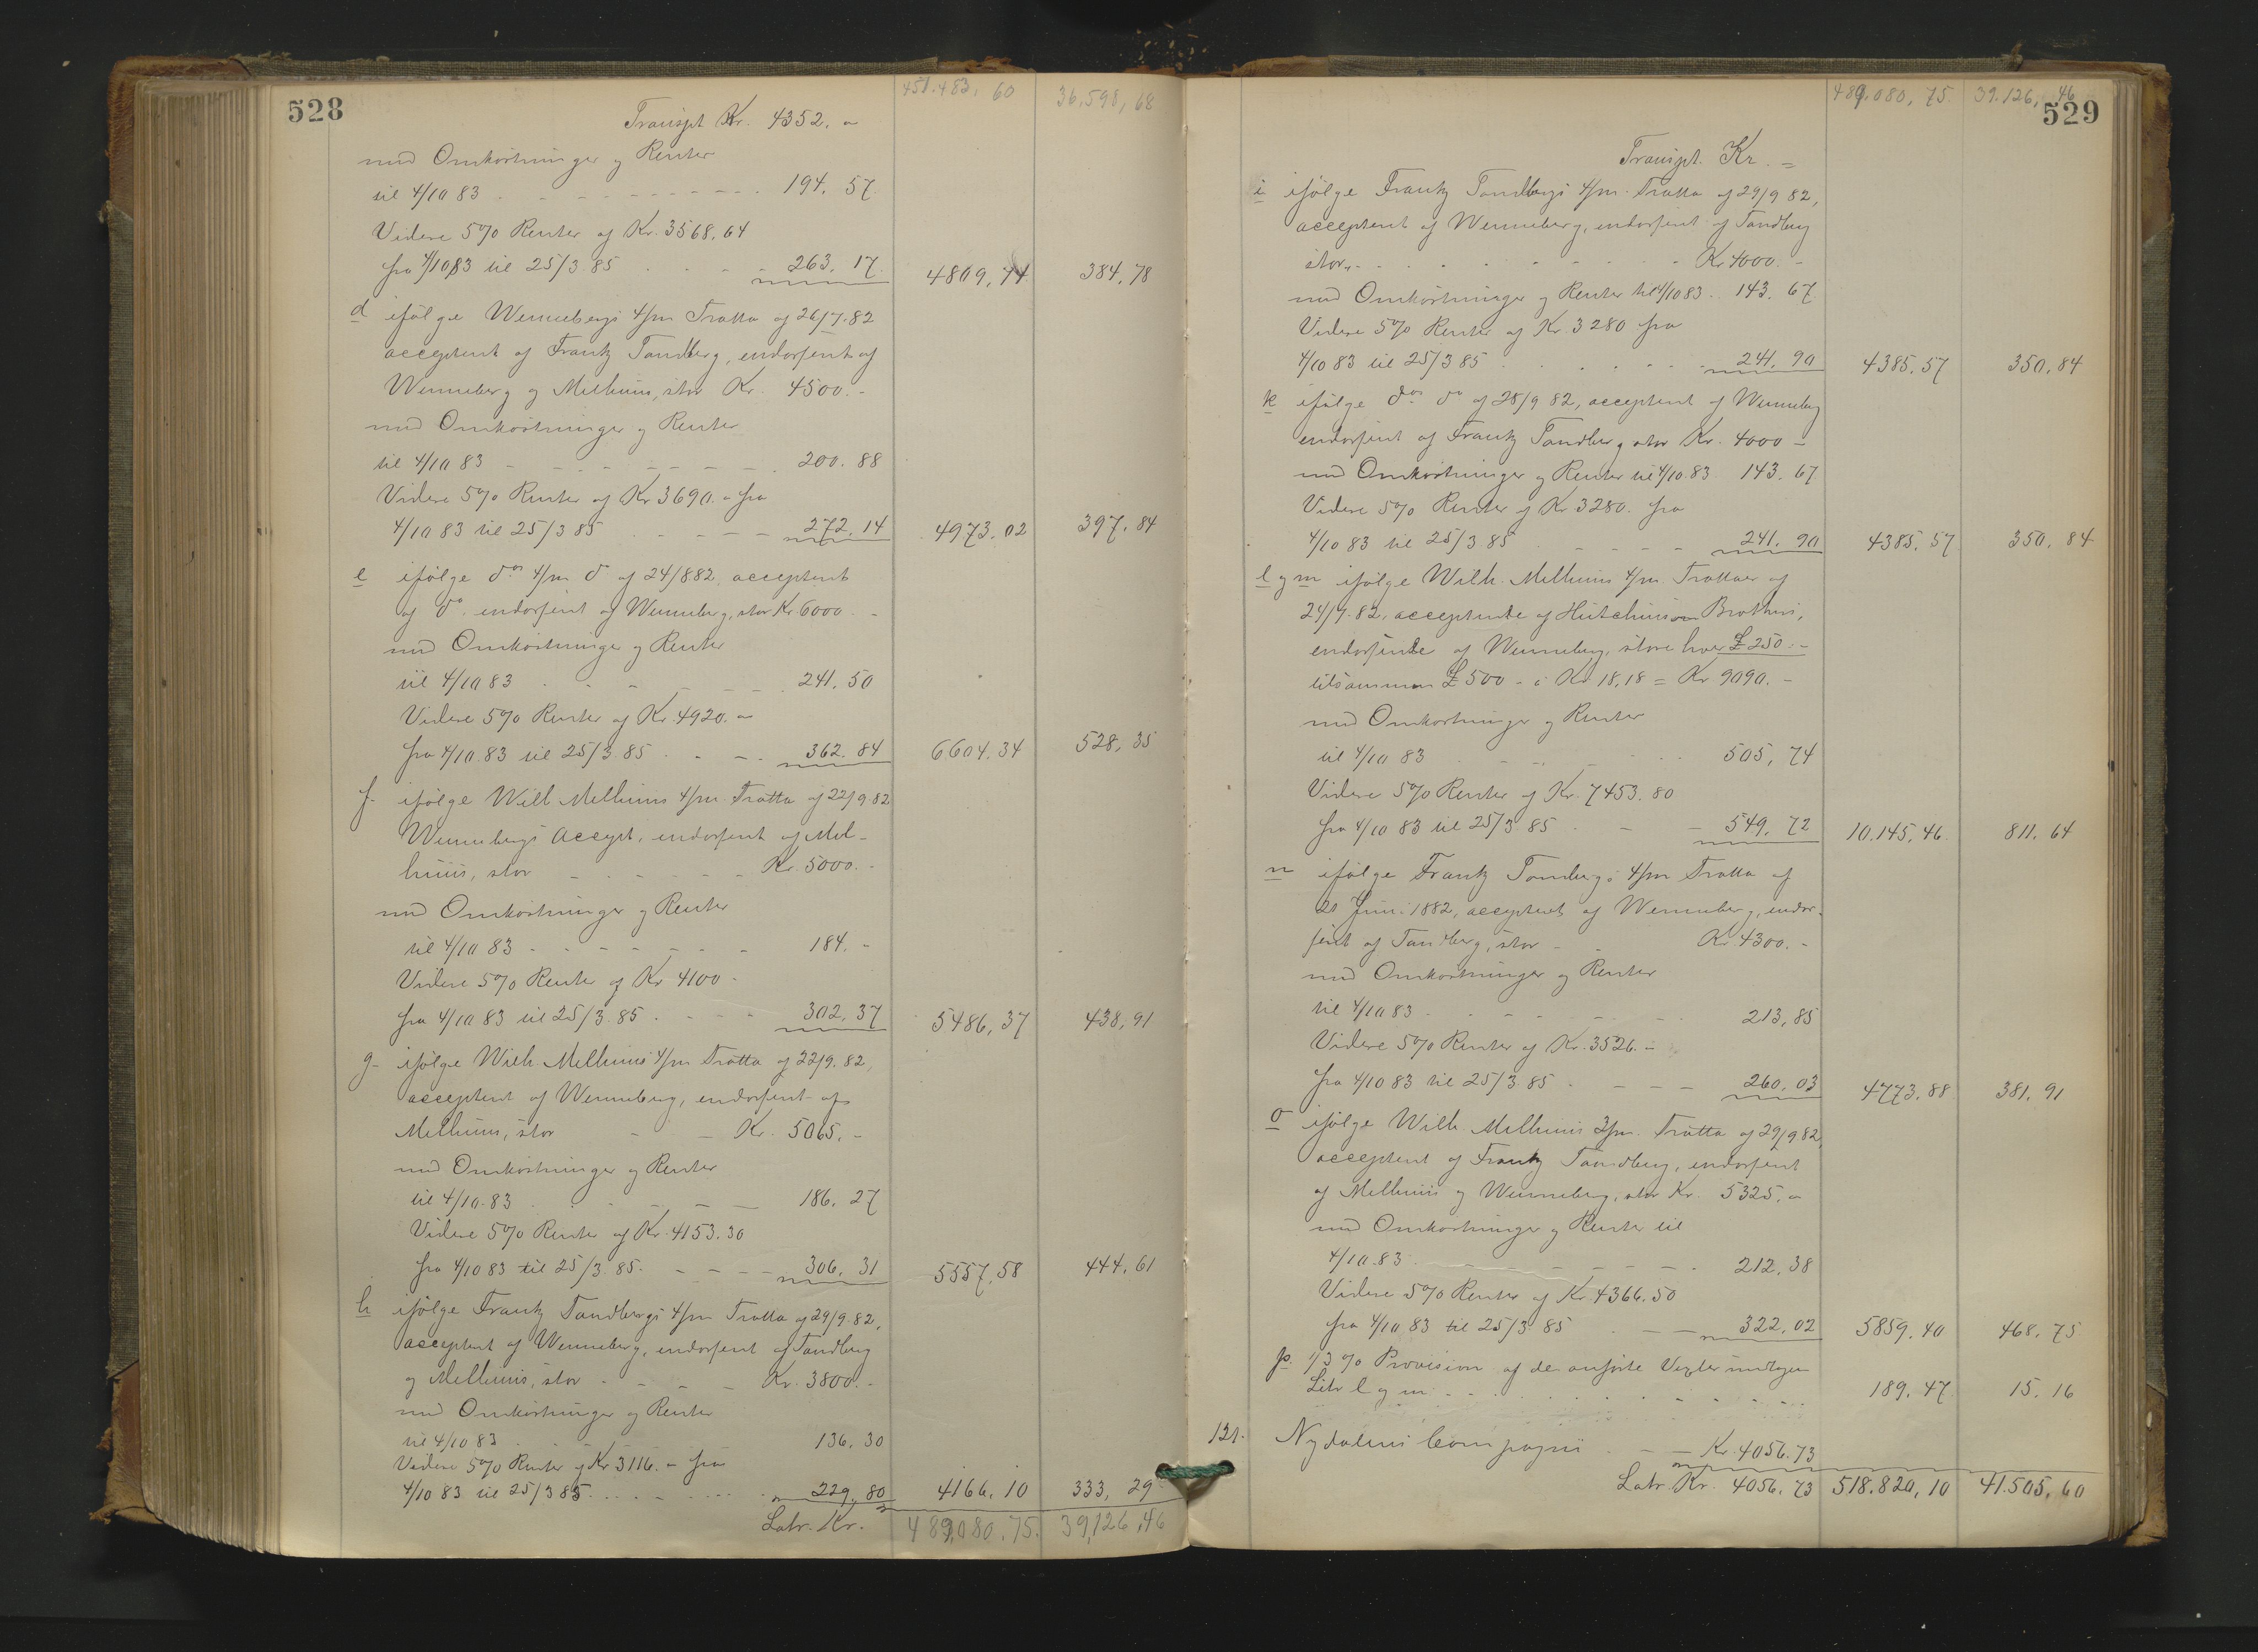 528
451.483, 60 36,598, 68
Transpt Kr. 4352. -
med Omkostninger og Renter
til 4/10 83 194. 57
Videre 5% Renter af Kr. 3568,64
fra 4/10 83 til 25/3 85 263. 17 4809,74 384,78
d ifølge Wennebergs 4/m Tratta af 26/7. 82
acceptert af Frantz Tandberg, endossert af
Wenneberg og Melhuus, stor Kr. 4500. -
med Omkostninger og Renter
til 4/10 83 200. 88
Videre 5% Renter af Kr 3690. - fra
4/10 83 til 25/3 85 272. 14 4973. 02 397. 84
e ifølge dos 4/m do af 24/8 82 acceptert
af do endossert af Wenneberg, stor Kr 6000. -
med Omkostninger og Renter
til 4/10 83 241. 50
Videre 5% Renter af Kr. 4920. -
fra 4/10. 83 til 25/3. 85 362. 84 6604. 34 528, 35
f. ifølge Wilh Melhuus 4/m Tratta af 22/9. 82
Wennebergs Accept, endossert af Mel-
huus, stor Kr. 5000. -
med Omkostninger og Renter
til 4/10 83 184. -
Videre 5% Renter af Kr 4100 -
fra 4/10 83 til 25/3. 85 302. 37 5486, 37 438, 91
g- ifølge Wilh Melhuus 4/m Tratta af 22/9. 82,
acceptert af Wenneberg, endossert af
Melhuus, stor Kr. 5065. -
med Omkostninger og Renter
til 4/10. 83 186. 27
Videre 5% Renter af Kr. 4153. 30
fra 4/10 83 til 25/3 85. 306. 31 5557,58 444,61
h ifølge Frantz Tandbergs 4/m Tratta af 29/9. 82,
acceptert af Wenneberg, endossert af Tandberg
og Melhuus, stor Kr. 3800. -
med Omkostninger og Renter
til 4/10 83 136. 30
Videre 5% Renter af Kr 3116. - fra
4/10 83 til 25/3 85 229. 80 4166. 10 333, 29
Latr. Kr. 489,080.75. 39,126,46
529
489.080, 75. 39.126, 46
Transpt. Kr. =
i ifølge Frantz Tandbergs 4/m. Tratta af 29/9 82,
acceptert af Wenneberg, endossert af Tandberg
stor Kr 4000. -
med Omkostninger og Renter til 4/10 83. 143. 67
Videre 5% Renter af Kr 3280 fra
4/10 83 til 25/3 85 241. 90 4385. 57 350, 84
k ifølge dos do af 28/9 82, acceptert af Wenneberg
endossert af Frantz Tandberg stor Kr. 4000 -
med Omkostninger og Renter til 4/10. 83 143. 67
Videre 5% Renter af Kr 3280. fra
4/10 83 til 25/3. 85 241. 90 4385. 57 350, 84
l og m ifølge Wilh. Melhuus 4/m. Trattaer af
24/7. 82, accepterte af Hutchinson Brothers,
endosserte af Wenneberg, store hver £ 250. -
tilsammen £ 500 - à Kr 18,18 = Kr 9090. -
med Omkostninger og Renter
til 4/10 83 505, 74
Videre 5% Renter af Kr. 7453. 80
fra 4/10 83 til 25/3 85 549. 72 10.145, 46 811. 64
n ifølge Frantz Tandbergs 4/m Tratta af
21 Juni 1882, acceptert af Wenneberg, endos-
sert af Tandberg, stor Kr 4300. -
med Omkostninger og Renter
til 4/10 83 213, 85
Videre 5% Renter af Kr. 3526. -
fra 4/10 83 til 25/3 85 260, 03 4773. 88 381. 91
o ifølge Wilh. Melhuus 3/m. Tratta af 29/9 82,
acceptert af Frantz Tandberg, endossert
af Melhuus og Wenneberg, stor Kr. 5325. -
med Omkostninger og Renter til
4/10. 83 212, 38
Videre 5% Renter af Kr. 4366. 50
fra 4/10 83 til 25/3 85 322. 02 5859. 40 468. 75
p. 1/3 % Provision af de anførte Vexler undtagen
Litr l og m 189. 47 15. 16
121. Nydalens Compagni Kr. 4056. 73
Latr. Kr. 4056. 73 518.820, 10 41.505, 60